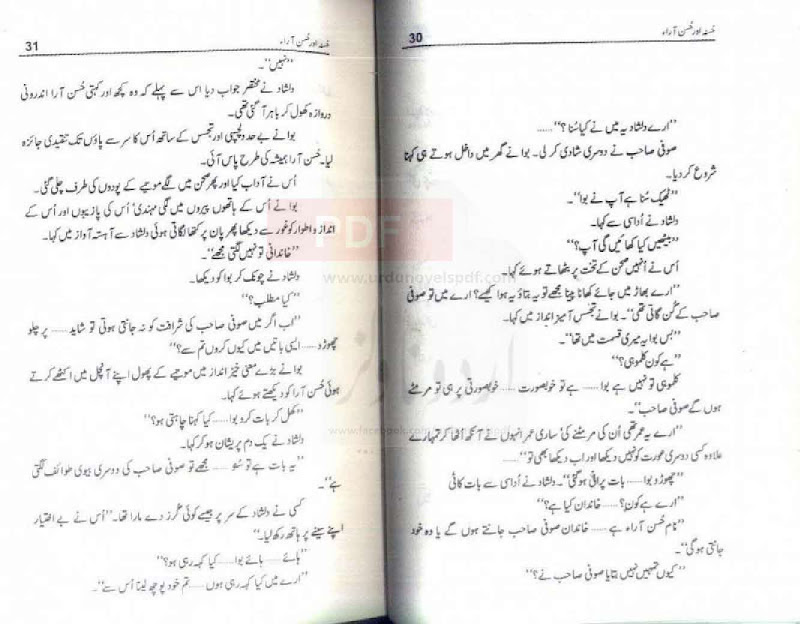 30
حُسنہ اور حُسن آراء
”ارے دلشاد یہ میں نے کیا سُنا؟“......
صوفی صاحب نے دوسری شادی کر لی۔ بوا نے گھر میں داخل ہوتے ہی کہنا
شروع کر دیا۔
”ٹھیک سُنا ہے آپ نے بوا“۔
دلشاد نے اُداسی سے کہا۔
”بیٹھیں کیا کھائیں گی آپ؟“
اُس نے اُنہیں صحن کے تخت پر بٹھاتے ہوئے کہا۔
”ارے بھاڑ میں جائے کھانا پینا مجھے تو یہ بتاؤ یہ ہوا کیسے؟ ارے میں تو صوفی
صاحب کے گُن گاتی تھی“۔ بوا نے تجسس آمیز انداز میں کہا۔
”بس بوا یہ میری قسمت میں تھا“۔
”ہے کون کلموہی؟“
کلموہی تو نہیں ہے بوا...... ہے تو خوبصورت ...... خوبصورتی پر ہی تو مر مٹے
ہوں گے صوفی صاحب“۔
”ارے یہ عمر تھی اُن کی مر مٹنے کی، ساری عمر انہوں نے آنکھ اُٹھا کر تمہارے
علاوہ کسی دوسری عورت کو نہیں دیکھا اور اب دیکھا بھی تو“......
”چھوڑو بوا...... بات پرانی ہو گئی“۔ دلشاد نے اُداسی سے بات کاٹی
”ارے ہے کون؟...... خاندان کیا ہے؟“
”نام حُسن آراء ہے...... خاندان صوفی صاحب جانتے ہوں گے یا وہ خود
جانتی ہوگی“۔
”کیوں تمہیں نہیں بتایا صوفی صاحب نے؟“
31
حُسنہ اور حُسن آراء
”نہیں“۔
دلشاد نے مختصر جواب دیا اس سے پہلے کہ وہ کچھ اور کہتی حُسن آرا اندرونی
دروازہ کھول کر باہر آ گئی تھی۔
بوا نے بے حد دلچسپی اور تجسس کے ساتھ اُس کا سر سے پاؤں تک تنقیدی جائزہ
لیا۔ حُسن آرا ہمیشہ کی طرح پاس آئی۔
اُس نے آداب کیا اور پھر صحن میں لگے موتیے کے پودوں کی طرف چلی گئی۔
بوا نے اُس کے ہاتھوں پیروں میں لگی مہندی، اُس کی پازیبوں اور اُس کے
انداز و اطوار کو غور سے دیکھا پھر پان پر کتھا لگاتی ہوئی دلشاد سے آہستہ آواز میں کہا۔
”خاندانی تو نہیں لگتی مجھے“۔
دلشاد نے چونک کر بوا کو دیکھا۔
”کیا مطلب؟“
”اب اگر میں صوفی صاحب کی شرافت کو نہ جانتی ہوتی تو شاید...... پر چلو
چھوڑو...... ایسی باتیں میں کیوں کروں تم سے؟“
بوا نے بڑے معنی خیز انداز میں موتیے کے پھول اپنے آنچل میں اکٹھے کرتے
ہوئی حُسن آرا کو دیکھتے ہوئے کہا۔
”کھل کر بات کرو بوا...... کیا کہنا چاہتی ہو؟“
دلشاد نے یک دم پریشان ہو کر کہا۔
”یہ بات ہے تو سُنو...... مجھے تو صوفی صاحب کی دوسری بیوی طوائف لگتی
ہے“۔
کسی نے دلشاد کے سر پر جیسے کوئی گرز دے مارا تھا۔ ”اُس نے بے اختیار
اپنے سینے پر ہاتھ رکھ لیا۔“
”ہائے...... ہائے بوا...... کیا کہہ رہی ہو؟“
”ارے میں کیا کہہ رہی ہوں...... تم خود پوچھ لینا اُس سے“۔
PDF
www.urdunovelspdf.com
اردو ناولز